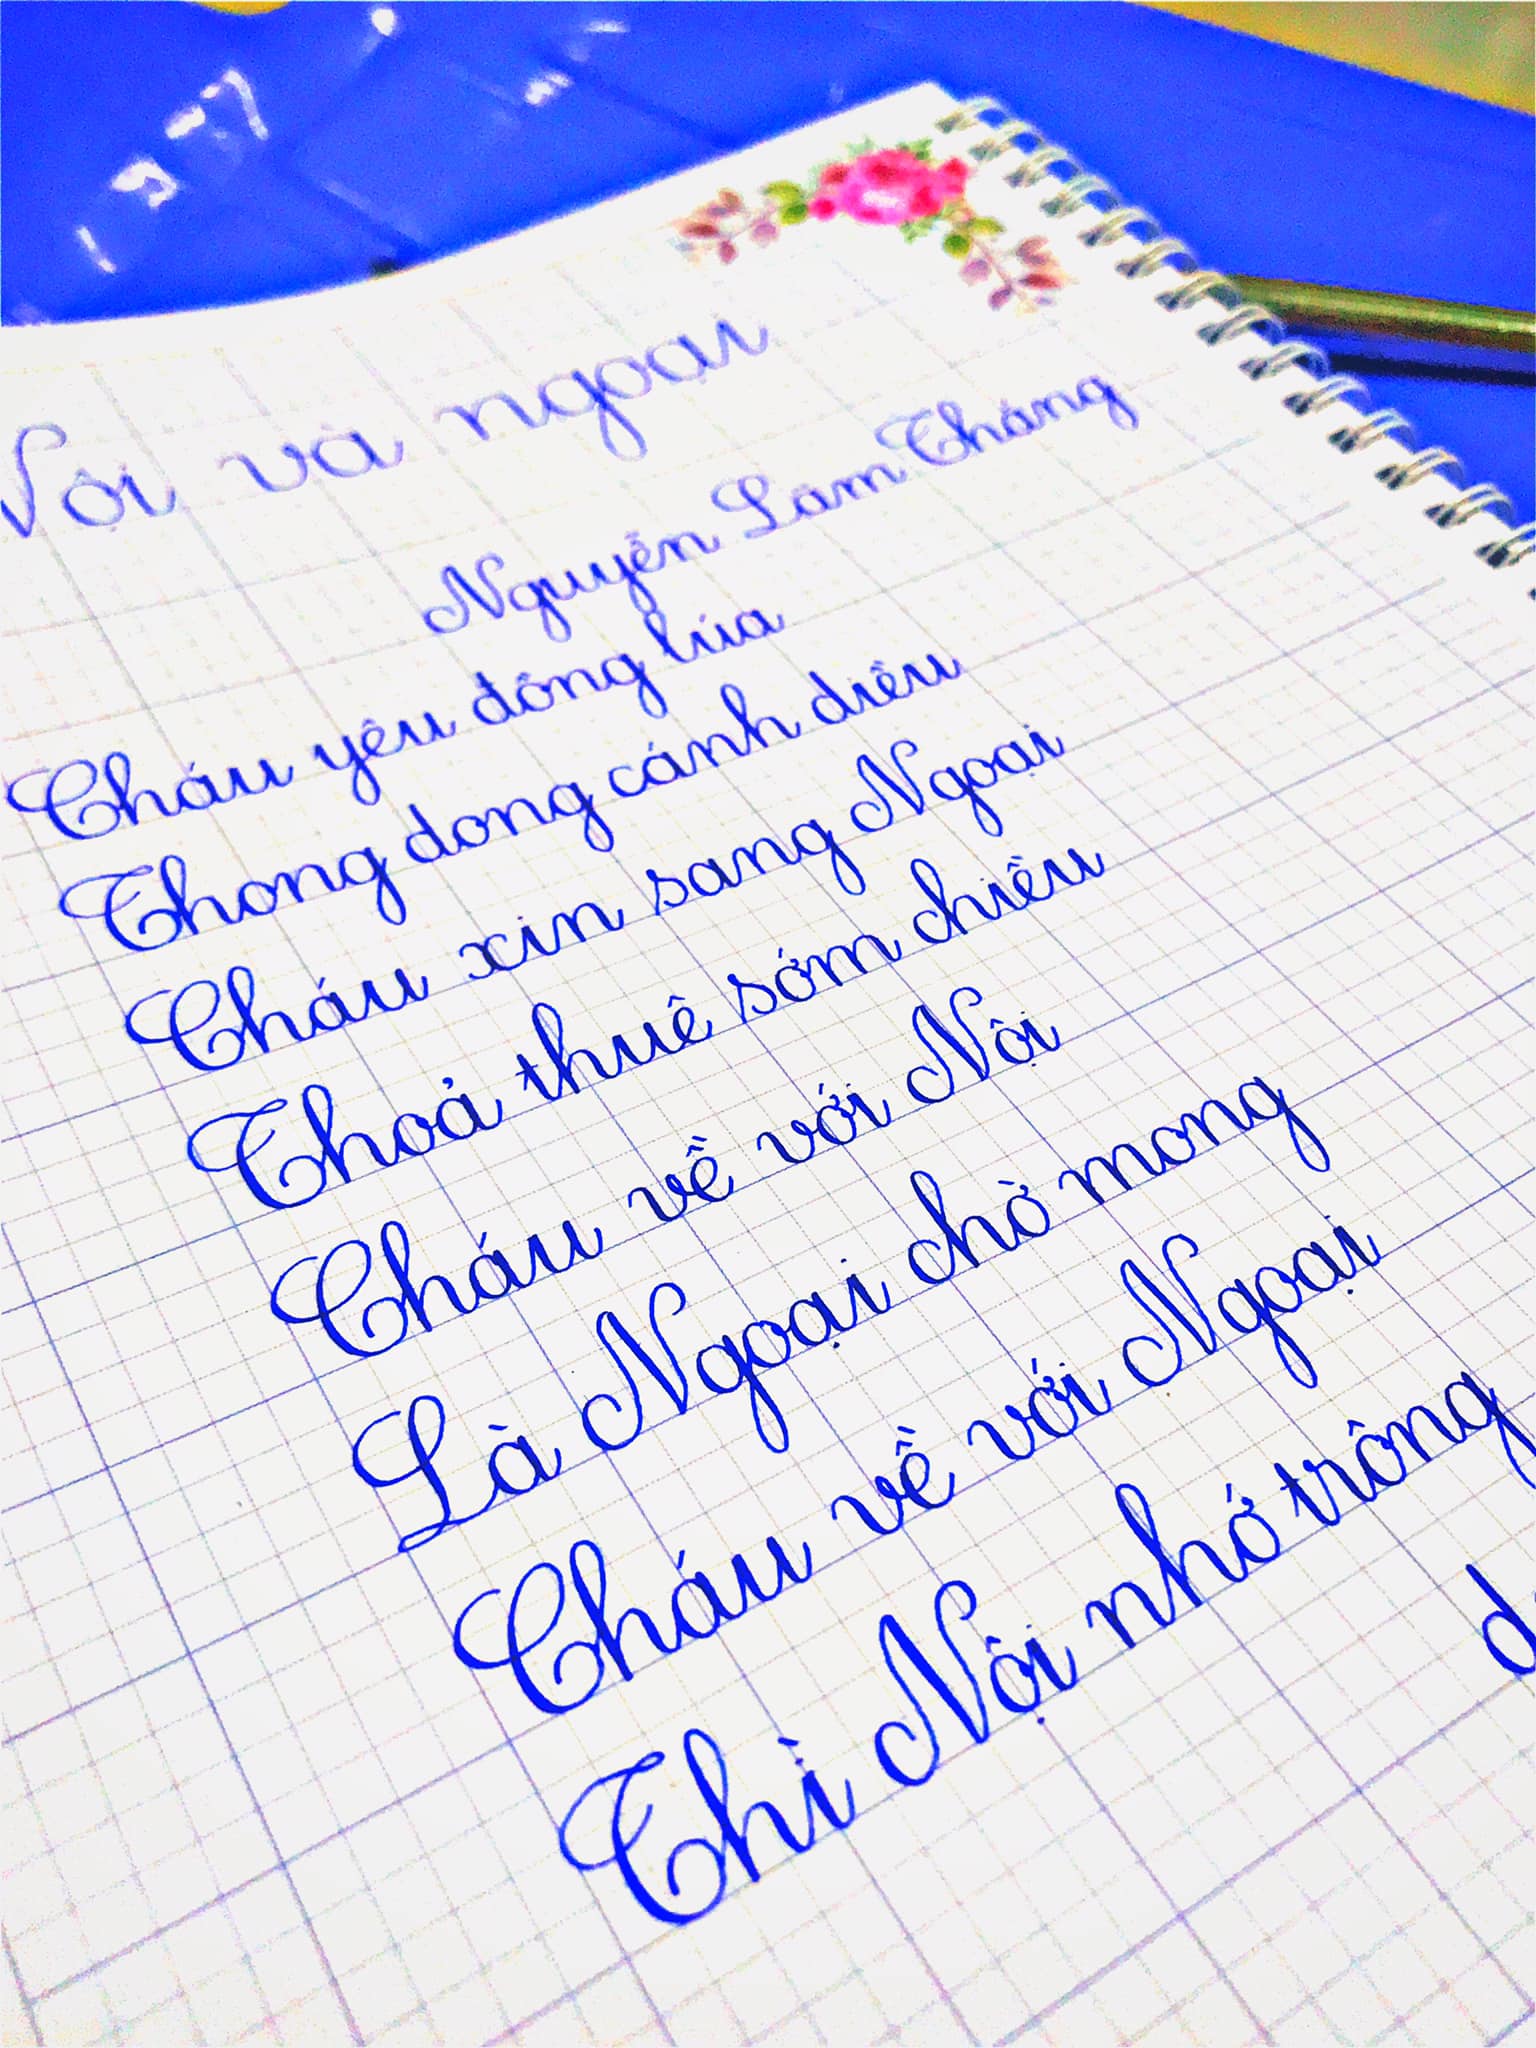 Nội và ngoại
Nguyễn Lãm Thắng
Cháu yêu đồng lúa
Thong dong cánh diều
Cháu xin sang Ngoại
Thoả thuê sớm chiều
Cháu về với Nội
Là Ngoại chờ mong
Cháu về với Ngoại
Thì Nội nhớ trông